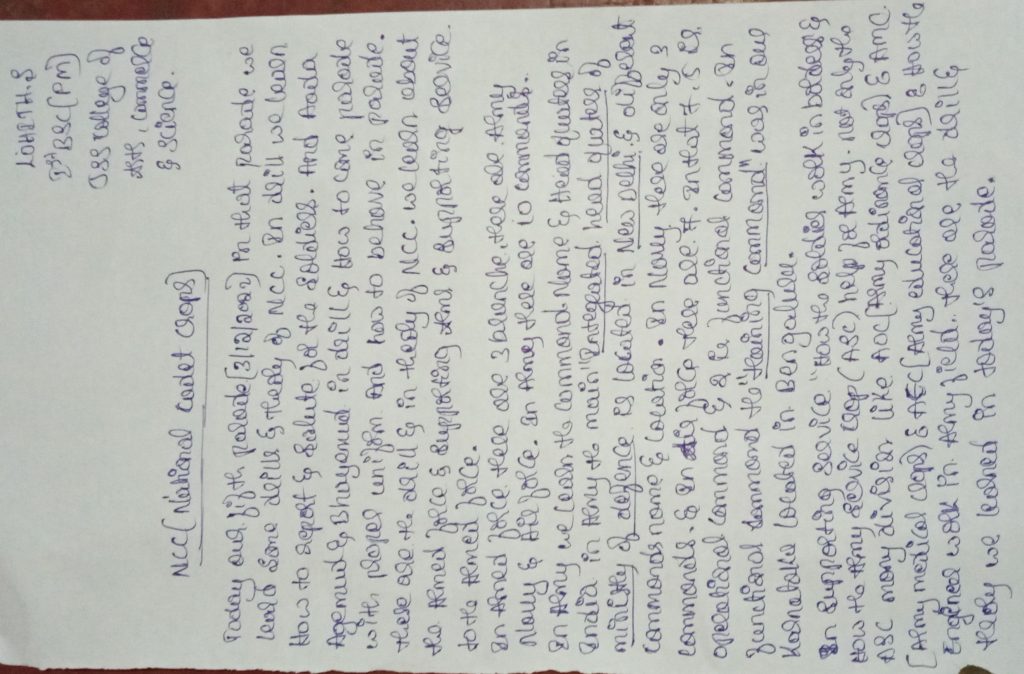 LiHITH.S
Ist BSC(PM)
JSS college of
Arts, Commerce
& Science.
NCC (National cadet crops)
Today our fifth parade [3/12/2002] in that parade we
learn some drill & theory of NCC. In drill we learn
How to report & salute for the soldiers. And Aada
Agemud & Bhayemud in drill & How to come parade
with proper uniform And how to behave in parade.
these are the drill & in theory of NCC. we learn about
the Armed force & supporting Arms & supporting service.
to the Armed force.
In Armed force there are 3 branche, there are Army
Navy & Air force. In Army there are 10 commands.
In Army we learn the command Name & Head quaters in
India in Army the main "Integrated head quaters of
ministry of defence is located in New Delhi & different
commands name & location. In Navy there are only 3
commands. & In Air force there are 7. In that 7, 5 is
operational command & 2 is functional command. In
functional command the "training command" was in our
Karnataka located in Bengaluru.
In supporting service "How the soldiers work in borders &
How the Army service crop (ASC) help for Army. not only the
ASC many division like AOC [Army ordinance crops] & AMC
[Army medical crops] & AEC [Army educational crops] & How the
Engineer work in Army field. these are the drill &
theory we learned in today's parade.